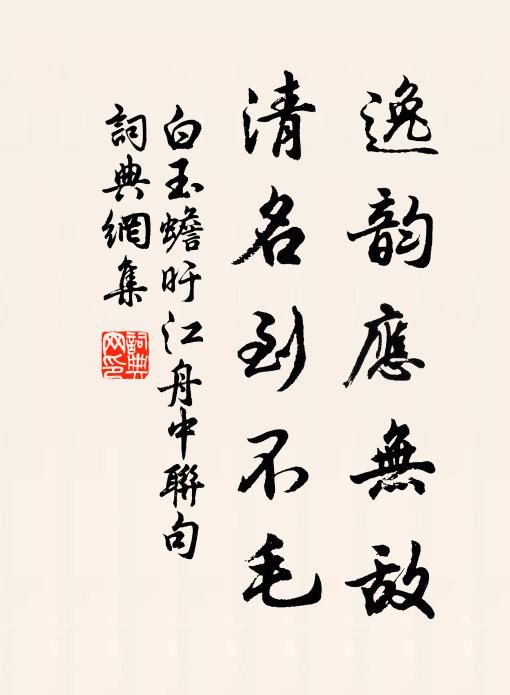 逸韵應無敵
清名到不毛
白玉蟾旴江舟中聯句
詞典網集
詞典
网印